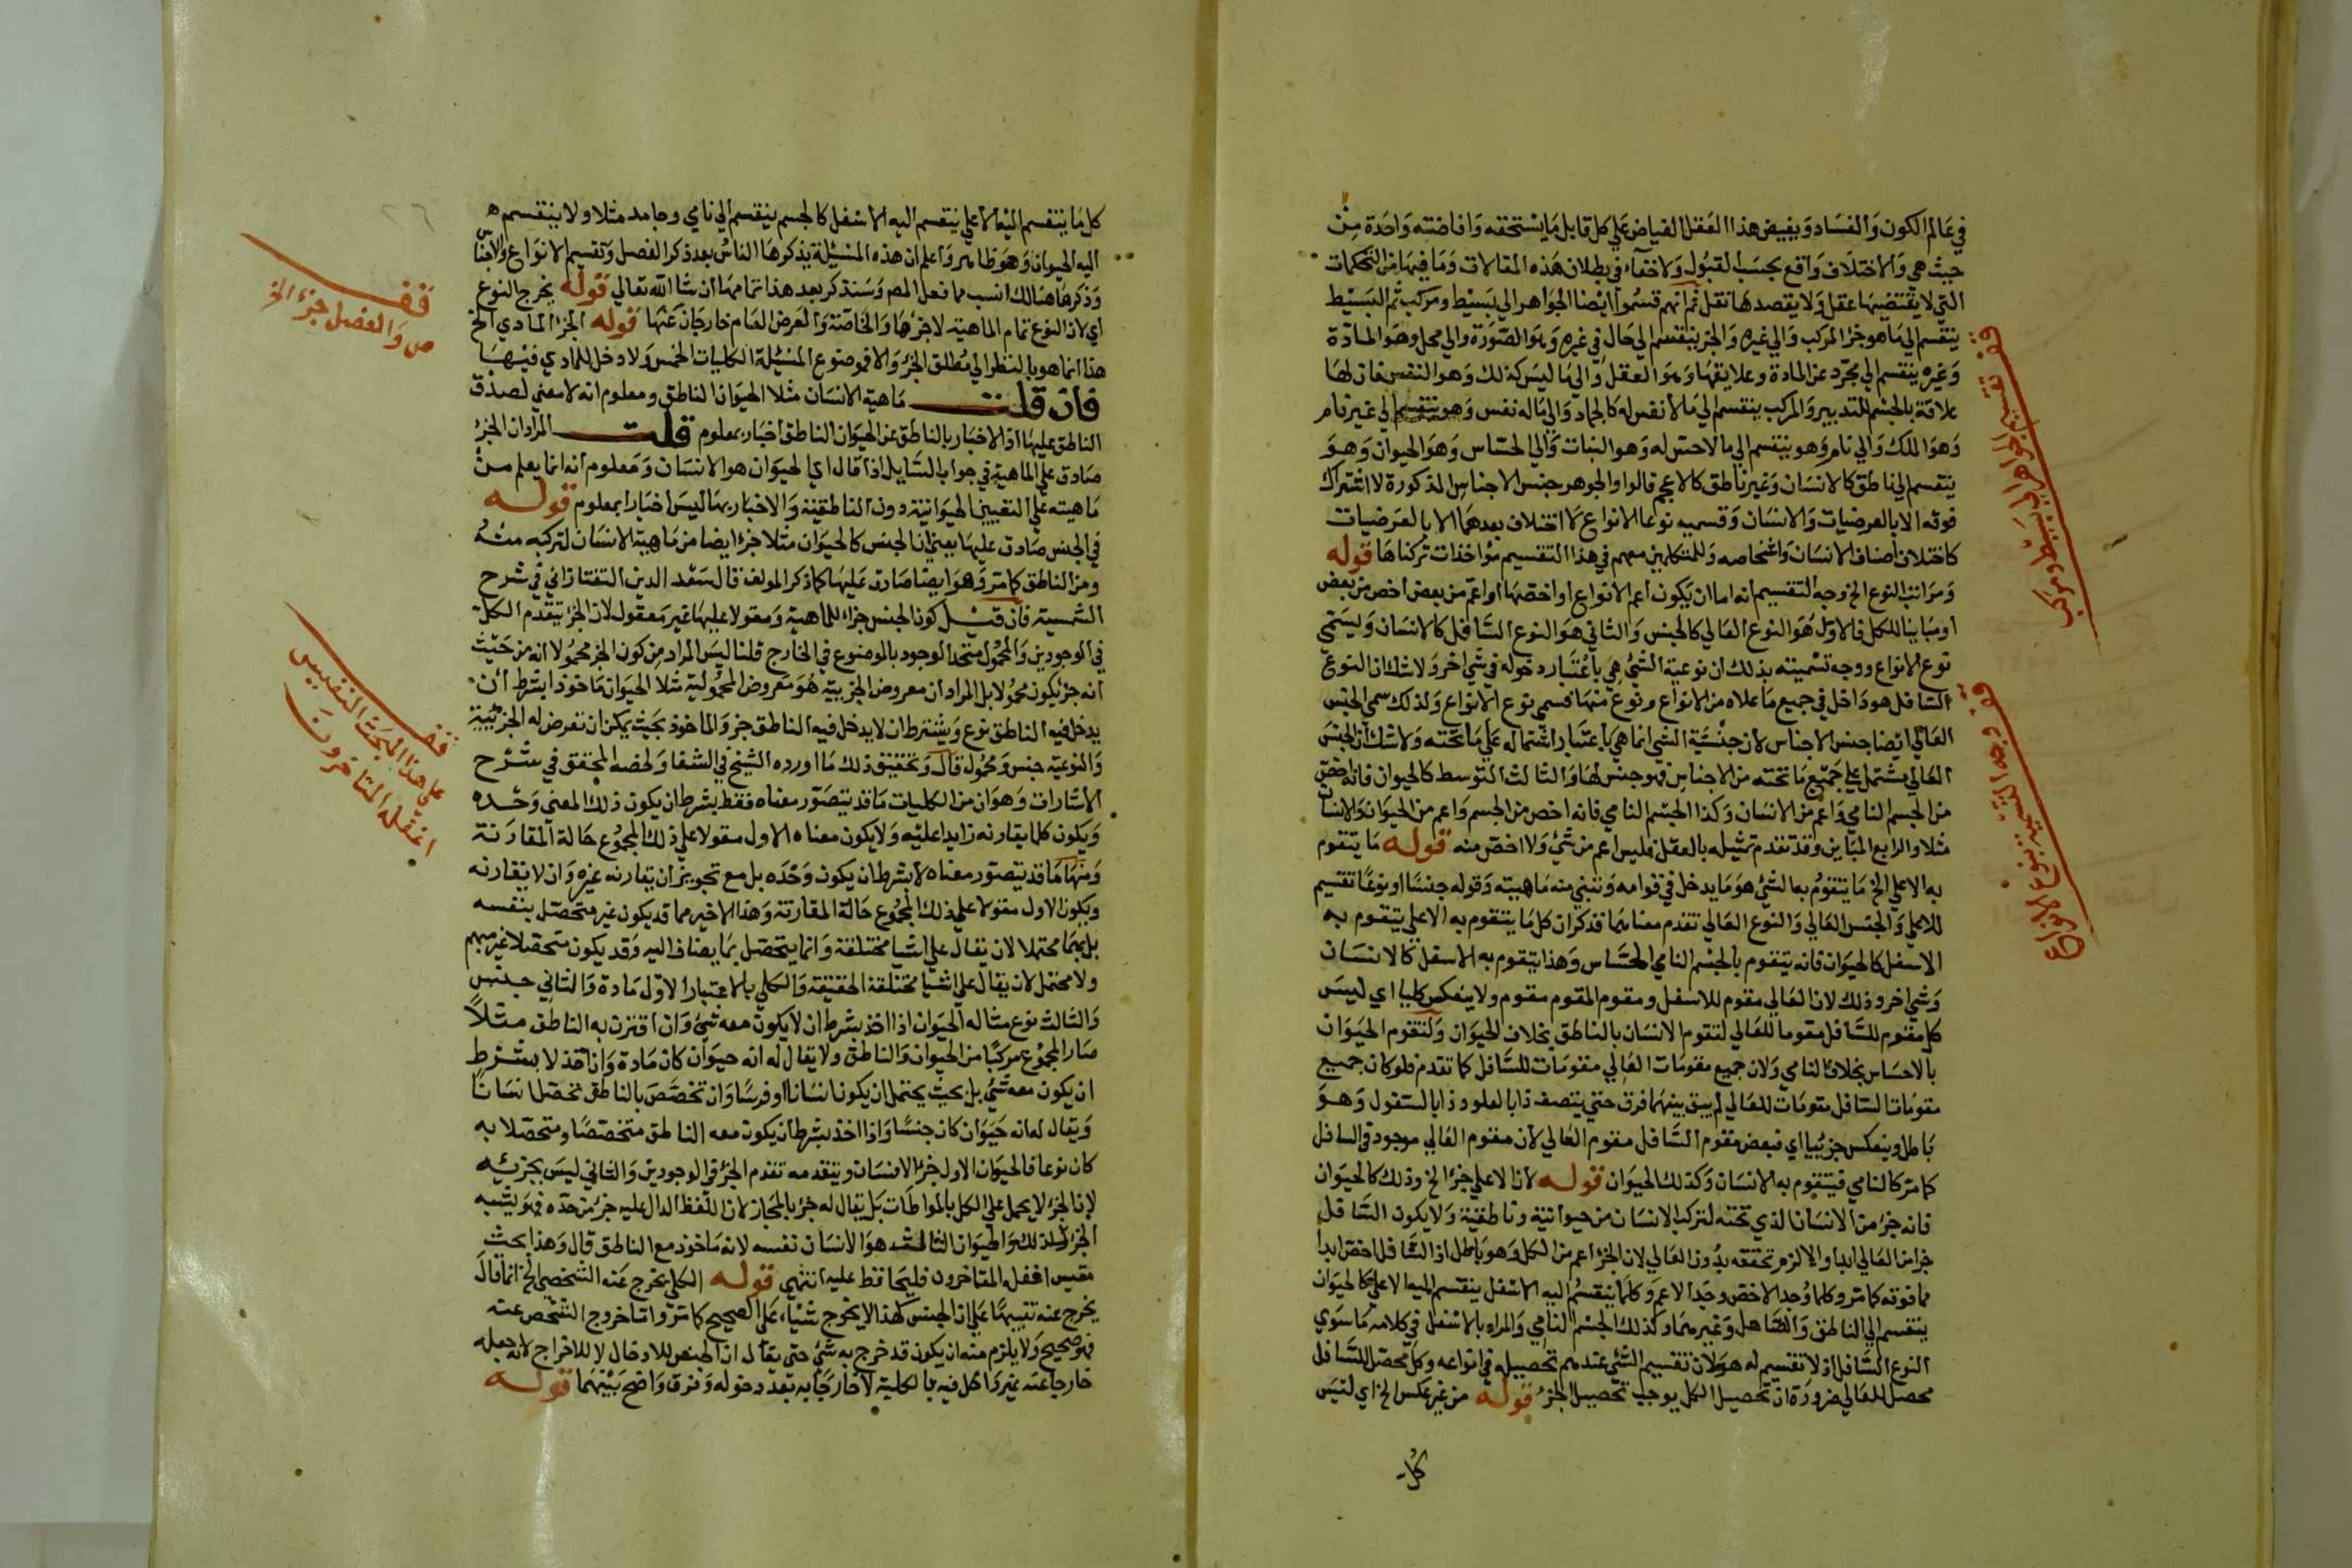 في عالم الكون والفساد ويفيض هذا العقل الفياض علي كل قابل مايستحقه وافاضته واحدة من
حيث هي والاختلاف واقع بحسب القبول ولاخفاء في بطلان هذه المقالات وما فيها من التحكمات
التي لا يقتضيها عقل ولا يعضدها نقل ثم انهم قسموا ايضا الجواهر الي بسيط ومركب ثم البسيط
ينقسم الي ما هو جزء المركب والي غيره والجزء ينقسم الي حال في غيره وهو الصورة والي محل وهو المادة
وغيره ينقسم الي مجرد عن المادة وعلايقها وهو العقل والي ما ليس كذلك وهو النفس فان لها
علاقة بالجسم للتدبير والمركب ينقسم الي ما لا نفس له كالجماد والي ما له نفس وهو ينقسم الي غير نام
وهو الملك والي نام وهو ينقسم الي ما لا حس له وهو النبات والي الحساس وهو الحيوان وهو
ينقسم الي ناطق كالانسان وغير ناطق كالاعجم قالوا والجوهر جنس الاجناس المذكورة لا اشتراك
فوقه الا بالعرضيات والانسان وقسيمه نوعا الانواع لا اختلاف بعدهما الا بالعرضيات
كاختلاف اصناف الانسان واشخاصه وللمتكلمين معهم في هذا التقسيم مؤاخذات تركناها قوله
ومراتب النوع الخ وجه التقسيم انه اما ان يكون اعم الانواع او اخصها او اعم من بعض اخص من بعض
او مباينا للكل فالاول هو النوع العالي كالجنس والثاني هو النوع السافل كالانسان ويسمي
نوع الانواع ووجه تسميته بذلك ان نوعية الشيء هي باعتبار دخوله في شي اخر ولا شك ان النوع
السافل هو داخل في جميع ما علاه من الانواع ونوع منها فسمي نوع الانواع ولذلك سمي الجنس
العالي ايضا جنس الاجناس لان جنسية الشي انما هي باعتبار اشتماله علي ما تحته ولا شك ان الجنس
العالي يشتمل علي جميع ما تحته من الاجناس فهو جنس لها والثالث المتوسط كالحيوان فانه اخص
من الجسم النامي واعم من الانسان وكذا الجسم النامي فانه اخص من الجسم واعم من الحيوان والانسان
مثلا والرابع المباين وقد تقدم تمثيله بالعقل فليس اعم من شي ولا اخص منه قوله ما يتقوم
به الاعلي الخ ما يتقوم به الشي هو ما يدخل في قوامه وتنبني منه ماهيته وقوله جنسا او نوعا تقسيم
للاعلي والجنس العالي والنوع العالي تقدم معناهما قد ذكر ان كل ما يتقوم به الاعلي يتقوم به
الاسفل كالحيوان فانه يتقوم بالجسم النامي الحساس وهذا يتقوم به الاسفل كالانسان
وشي اخر وذلك لان العالي مقوم للاسفل ومقوم المقوم مقوم ولا ينعكس كليا اي ليس
كل مقوم للسافل مقوما للعالي لتقوم الانسان بالناطق بخلاف الحيوان ولتقوم الحيوان
بالاحساس بخلاف النامي ولان جميع مقومات العالي مقومات للسافل كما تقدم فلو كان جميع
مقومات السافل مقومات للعالي لم يبق بينهما فرق حتي يتصف ذا بالعلو وذا بالسفول وهو
باطل وينعكس جزئيا اي فبعض مقوم السافل مقوم العالي لان مقوم العالي موجود في السافل
كما مر كالنامي فيتقوم به الانسان وكذلك الحيوان قوله لان الاعلي جزء الخ وذلك كالحيوان
فانه جزء من الانسان الذي تحته لتركب الانسان من حيوانية وناطقية ولا يكون السافل
جزا من العالي ابدا والا لزم تحققه بدون العالي لان الجزء اعم من الكل وهو باطل اذ السافل اخص ابدا
مما فوقه كما مر وكلما وجد الاخص وجد الاعم وكلما ينقسم اليه الاسفل ينقسم اليه الاعلي كالحيوان
ينقسم الي الناطق والصاهل وغيرهما وكذلك الجسم النامي والمراد بالاسفل في كلامه ما سوي
النوع السافل اذ لا تقسيم له هو ولان تقسيم الشي عندهم تحصيله في انواعه وكل محصل للسافل
محصل للعالي ضرورة ان تحصيل الكل يوجب تحصيل الجزء قوله من غير عكس الخ اي ليس
كل
قف تقسيم الجواهر الي بسيط ومركب
قف وجه التسمية بنوع الانواع
كل ما ينقسم اليه الاعلي ينقسم اليه الاسفل كالجسم ينقسم الي نامي وجامد مثلا ولا ينقسم
اليه الحيوان وهو ظاهر واعلم ان هذه المسئلة يذكرها الناس بعد ذكر الفصل وتقسيم الانواع والاجناس
وذكرها هنالك انسب مما فعل المص وسنذكر بعد هذا تمامها ان شا الله تعالي قوله يخرج النوع
اي لان النوع تمام الماهية لا جزؤها والخاصة والعرض العام خارجان عنها قوله الجزء المادي الخ
هذا انما هو بالنظر الي مطلق الجزء والا فموضوع المسئلة الكليات الخمس ولا دخل للمادي فيها
فان قلت ماهية الانسان مثلا الحيوان الناطق ومعلوم انه لا معني لصدق
الناطق عليها اذ الاخبار بالناطق عن الحيوان الناطق اخبار بمعلوم قلت المراد ان الجزء
صادق علي الماهية في جواب السايل اذا قال اي الحيوان هو الانسان ومعلوم انه انما يعلم من
ماهيته علي التعيين الحيوانية دون الناطقية والاخبار بها ليس اخبارا بمعلوم قوله
في الجنس صادق عليها يعني ان الجنس كالحيوان مثلا جزء ايضا من ماهية الانسان لتركبه منه
ومن الناطق كما مر وهو ايضا صادق عليها كما ذكر المولف قال السعد الدين التفتازاني في شرح
الشمسية فان قيل كون الجنس جزء للماهية ومقولا عليها غير معقول لان الجزء يتقدم الكل
في الوجودين والمحمول متحد الوجود بالموضوع في الخارج قلنا ليس المراد من كون الجزء محمولا انه من حيث
انه جزء يكون محمولا بل المراد ان معروض الجزيية هو معروض المحمولية مثلا الحيوان ماخوذا بشرط ان
يدخل فيه الناطق نوع ويشترط ان لا يدخل فيه الناطق جزء والماخوذ بحيث يمكن ان تعرض له الجزئية
والنوعية جنس ومحمول قال وتحقيق ذلك ما اورده الشيخ في الشفا ولخصه المحقق في شرح
الاشارات وهو ان من الكليات ما قد يتصور معناه فقط بشرط ان يكون ذلك المعني وحده
ويكون كلما يقارنه زايدا عليه ولا يكون معناه الاول مقولا علي ذلك المجموع حالة المقارنة
ومنها ما قد يتصور معناه لا بشرط ان يكون وحده بل مع تجويز ان يقارنه غيره وان لا يقارنه
ويكون الاول مقولا علي ذلك المجموع حالة المقارنة وهذا الاخير مما قد يكون غير متحصل بنفسه
بل مبهما محتملا لان يقال علي اشيا مختلفة وانما يتحصل بما يضاف اليه وقد يكون متحصلا غير مبهم
ولا محتمل لان يقال علي اشيا مختلفة الحقيقة والكلي بالاعتبار الاول مادة والثاني جنس
والثالث نوع مثاله الحيوان اذا اخذ بشرط ان لا يكون معه شي وان اقترن به الناطق مثلا
صار المجموع مركبا من الحيوان والناطق ولا يقال له انه حيوان كان مادة وان اخذ لا بشرط
ان يكون معه شي بل بحيث يحتمل ان يكون انسانا او فرسا وان تخصص بالناطق تحصل انسانا
ويقال له انه حيوان كان جنسا واذا اخذ بشرط ان يكون معه الناطق متخصصا ومتحصلا به
كان نوعا فالحيوان الاول جزء الانسان ويتقدمه تقدم الجزء في الوجودين والثاني ليس بجزئيه
لان الجزء لا يحمل علي الكل بالمواطات بل يقال له جزء بالمجاز لان اللفظ الدال عليه جزء من حده فهو يشبه
الجزء لذلك والحيوان الثالث هو الانسان نفسه لانه ماخوذ مع الناطق قال وهذا بحث
نفيس اغفله المتاخرون فليحافظ عليه انتهي قوله الكلي يخرج عنه الشخصي الخ انما قال
يخرج عنه تنبيها علي ان الجنس كهذا لا يخرج شيا علي الصحيح كما مر واما خروج الشخص عنه
فصحيح ولا يلزم منه ان يكون قد خرج به شي حتي يقال ان الجنس للادخال لا للاخراج لانه جعله
خارجا عنه غير داخل فيه بالكلية لا خارجا به بعد دخوله وفرق واضح بينهما قوله
قف
ص والفصل جزء الخ
قف
علي هذا المبحث النفيس
اغفله المتاخرون